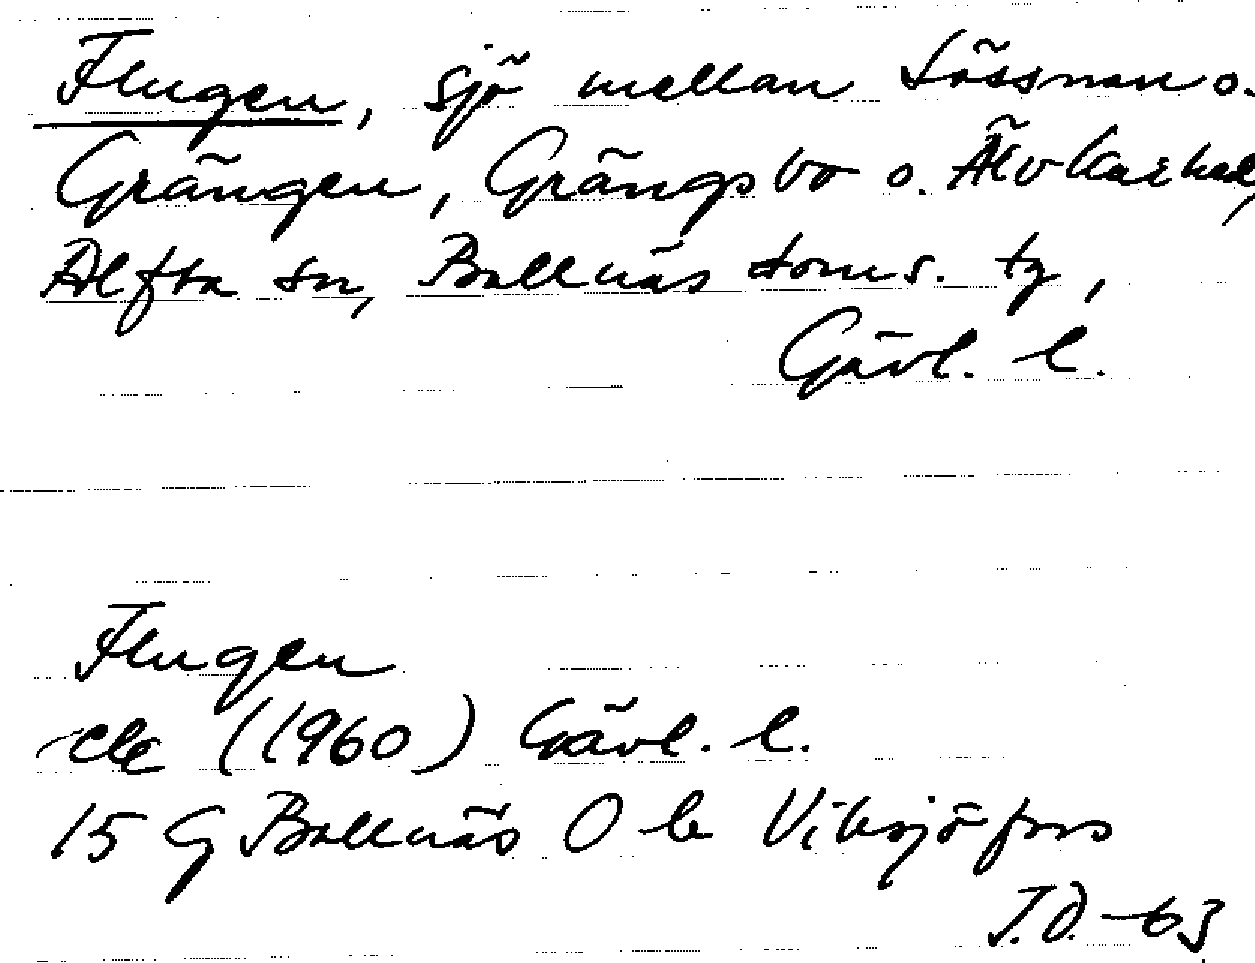 Flugen, sjö mellan Lössnan o.
Grängen, Grängsbo o. Älvkarhed,
Alfta sn, Bollnäs doms. tg,
Gävl. l.
Flugen
ek (1960) Gävl. l.
15 G Bollnäs O le Viksjöfors
J.O. -63